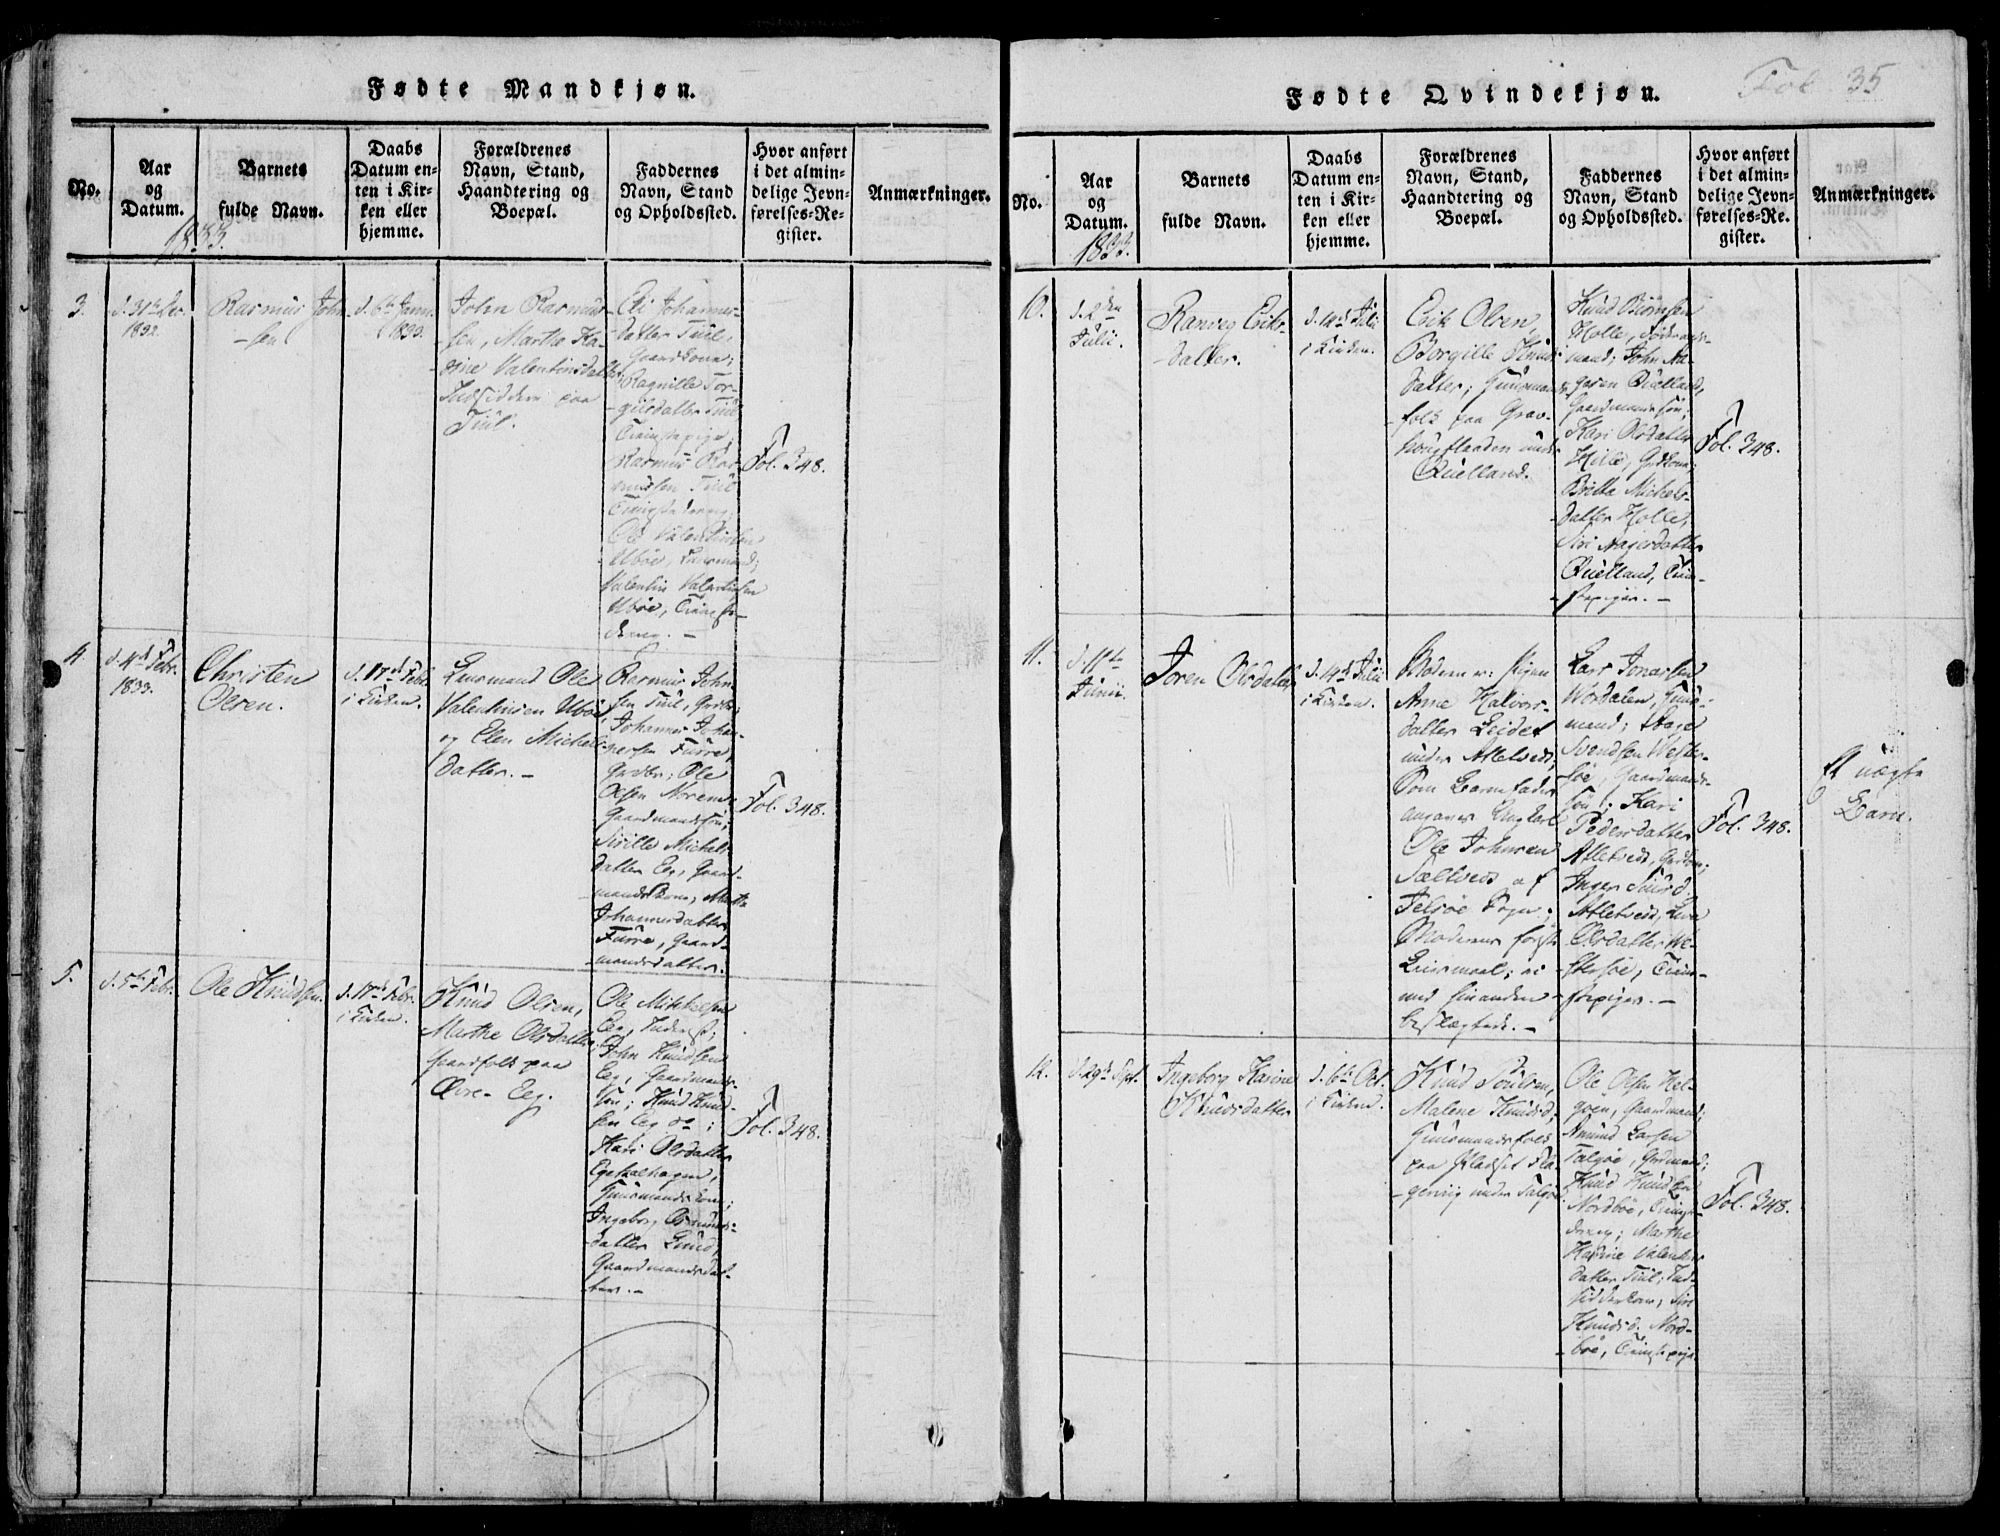 Fødte Mandkjøn.
No.
Aar
og
Datum.
Barnets
fulde Navn.
Daabs
Datum en-
ten i Kir-
ken eller
hjemme.
Forældrenes
Navn, Stand,
Haandtering og
Boepæl.
Faddernes
Navn, Stand
og Opholdssted.
Hvor anført
i det almin-
delige Jevn-
førelses-Re-
gister.
Anmærkninger.
1833.
3.
d. 31te Dec.
1832.
Rasmus John-
-sen
d. 6te Janr.
1833.
John Rasmus-
-sen, Marthe Ka-
-rine Valentinsdatter
Indsiddere paa
Tiül.
Eli Johannes-
-datter Tiül,
Gaardkone;
Ragnille Tor-
-gilsdatter Tiül
Tienistepige,
Rasmus Ras-
-mussen Tiül
Tienistedreng;
Ole Valentinsen
Uböe, Leüsmand;
Valentin Valentinsen
Uböe, Tieniste-
dreng. -
Fol. 348.
4.
d. 4de Febr.
1833.
Christen
Olsen.
d. 17de Febr.
i Kirken.
Leüsmand Ole
Valentinsen Uböe
og Elen Michels-
datter. -
Rasmus John-
sen Tiül, Grdbr;
Johannes Johan-
nesen Fürre,
Grdbr; Ole
Olsen Norem
Gaardmandssön;
Sirille Michels-
datter Eeg, Gaard-
-mandskone; Marthe
Johannesdatter
Fürre, Gaard-
-mandsdatter.
Fol. 348.
5.
d. 5te Febr.
Ole Knüdsen.
d. 17de Febr.
i Kirken.
Knüd Olsen,
Marthe Olsdatter
Gaardfolk paa
Övre- Eeg.
Ole Mikkelsen
Eeg, Inderst;
John Knüdsen
Eeg, Gaardmands-
sön; Knüd Knüd-
sen Eeg do;
Kari Olsdatter
Egeskalhagen,
Hüüsmandskone;
Ingeborg Osmünds-
datter Lünd,
Gaardmandsdat-
-ter. -
Fol. 348.
Fødte Qvindekjøn.
Fol. 35
No.
Aar
og
Datum.
Barnets
fulde Navn.
Daabs
Datum en-
ten i Kir-
ken eller
hjemme.
Forældrenes
Navn, Stand,
Haandtering og
Boepæl.
Faddernes
Navn, Stand
og Opholdssted.
Hvor anført
i det almin-
delige Jevn-
førelses-Re-
gister.
Anmærkninger.
1833.
10.
d. 2den
Julii.
Ranveg Eriks-
-datter.
d. 14de Julii
i Kirken.
Erik Olsen,
Borgille Knüds-
datter; Hüüsmands-
-folk paa Grav-
under
Qüelland.
Knüd Biörnsen
Holle,
mand; John Aa-
gesen Qüelland,
Gaardmandssön;
Kari Olsdatter
Hille, Grdkone;
Britta Michels-
-datter Holle,
Siri Aagesdatter
Qüelland, Tieni-
-stepiger. -
Fol. 348.
11.
d. 11te
Junii.
Joren Olsdatter
d. 14de Julii
i Kirken.
Moderen er: Pigen
Anne Halvors-
datter Leidet
under Atletveed;
Som Barnefader
angaves Ungkarl
Ole Johnsen
Sæltveed af
Jelsöe Sogn;
Moderens förste
Leiermaal; ei
med hinanden
beslægtede. -
Lars Jonassen
Wordalen, Hüüs-
mand; Aage
Svendsen Wester-
söe, Gaardmands-
sön; Kari
Pedersdatter
Atletveed, Grdkone;
Inger
Atletveed, Live
Olsdatter We-
-stersöe, Tieni-
-stepiger. -
Fol. 348.
Et uægte
Barn.
12.
d. 29de Sept.
Ingeborg Karine
Knüdsdatter
d. 6te Oct.
i Kirken.
Knüd Poülsen,
Malene Knüdsd,
Hüüsmandsfolk
paa Pladset Fla-
-gevig under Talgöe.
Ole Olsen Hel-
göen, Gaardmand;
Amünd Larsen
Talgöe, Grdmand;
Knüd Knüdsen
Nordböe, Tieniste-
dreng; Marthe
Karine Valentins-
datter Tiül; Ind-
sidderkone; Siri
Knüdsd. Nord-
-böe, Tienistepige.
Fol. 348.